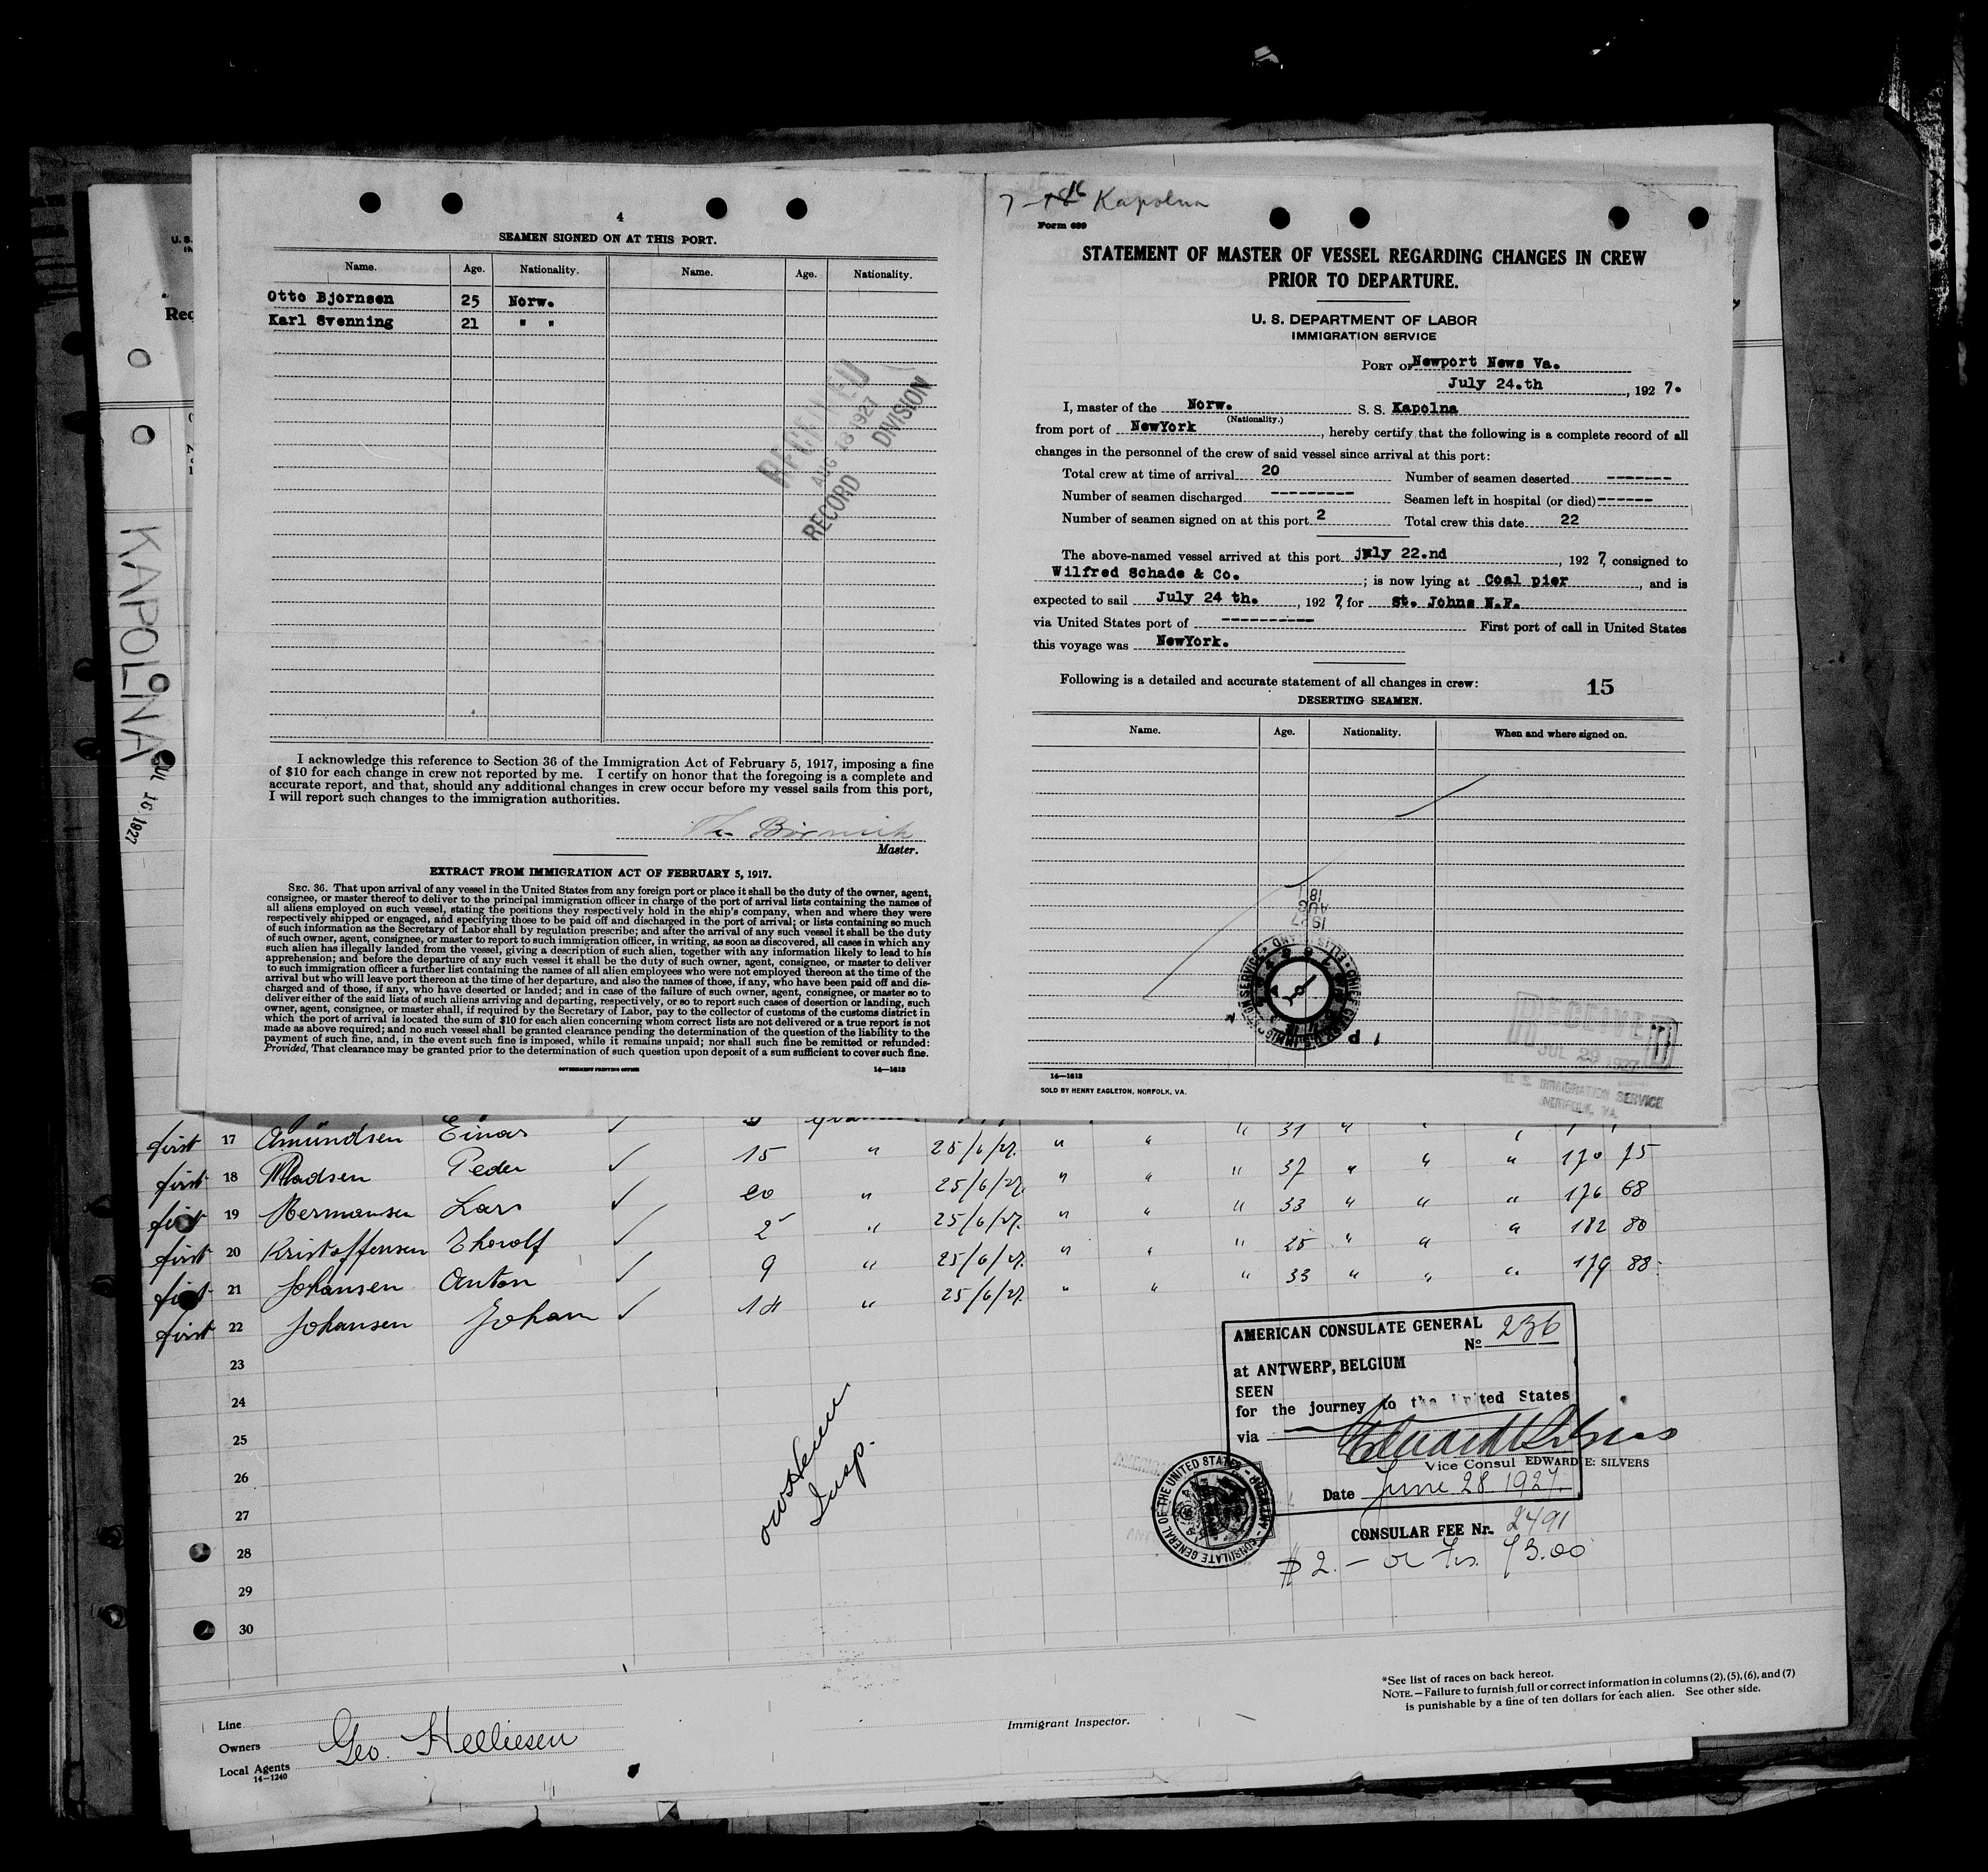 4
SEAMEN SIGNED ON AT THIS PORT.
Name. Age. Nationality. Name. Age. Nationality.
Otto Bjornsen 25 Norw.
Karl Svenning 21 " "
RECEIVED
AUG 18 1927
RECORD DIVISION
I acknowledge this reference to Section 36 of the Immigration Act of February 5, 1917, imposing a fine
of $10 for each change in crew not reported by me. I certify on honor that the foregoing is a complete and
accurate report, and that, should any additional changes in crew occur before my vessel sails from this port,
I will report such changes to the immigration authorities.
Master.
EXTRACT FROM IMMIGRATION ACT OF FEBRUARY 5, 1917.
SEC. 36. That upon arrival of any vessel in the United States from any foreign port or place it shall be the duty of the owner, agent,
consignee, or master thereof to deliver to the principal immigration officer in charge of the port of arrival lists containing the names of
all aliens employed on such vessel, stating the positions they respectively hold in the ship's company, when and where they were
respectively shipped or engaged, and specifying those to be paid off and discharged in the port of arrival; or lists containing so much
of such information as the Secretary of Labor shall by regulation prescribe; and after the arrival of any such vessel it shall be the duty
of such owner, agent, consignee, or master to report to such immigration officer, in writing, as soon as discovered, all cases in which any
such alien has illegally landed from the vessel, giving a description of such alien, together with any information likely to lead to his
apprehension; and before the departure of any such vessel it shall be the duty of such owner, agent, consignee, or master to deliver
to such immigration officer a further list containing the names of all alien employees who were not employed thereon at the time of the
arrival but who will leave port thereon at the time of her departure, and also the names of those, if any, who have been paid off and dis-
charged and of those, if any, who have deserted or landed; and in case of the failure of such owner, agent, consignee, or master so to
deliver either of the said lists of such aliens arriving and departing, respectively, or so to report such cases of desertion or landing, such
owner, agent, consignee, or master shall, if required by the Secretary of Labor, pay to the collector of customs of the customs district in
which the port of arrival is located the sum of $10 for each alien concerning whom correct lists are not delivered or a true report is not
made as above required; and no such vessel shall be granted clearance pending the determination of the question of the liability to the
payment of such fine, and, in the event such fine is imposed, while it remains unpaid; nor shall such fine be remitted or refunded:
Provided, That clearance may be granted prior to the determination of such question upon deposit of a sum sufficient to cover such fine.
GOVERNMENT PRINTING OFFICE 14—1613
Kapolna
Form 689
STATEMENT OF MASTER OF VESSEL REGARDING CHANGES IN CREW
PRIOR TO DEPARTURE.
U. S. DEPARTMENT OF LABOR
IMMIGRATION SERVICE
PORT OF Newport News Va.
July 24.th, 1927.
I, master of the Norw. S. S. Kapolna
(Nationality.)
from port of NewYork, hereby certify that the following is a complete record of all
changes in the personnel of the crew of said vessel since arrival at this port:
Total crew at time of arrival 20 Number of seamen deserted -------
Number of seamen discharged --------- Seamen left in hospital (or died) ------
Number of seamen signed on at this port 2 Total crew this date 22
The above-named vessel arrived at this port july 22.nd, 1927, consigned to
Wilfred Schade & Co.; is now lying at Coal pier, and is
expected to sail July 24 th., 1927, for St. Johns N.F.
via United States port of ---------- First port of call in United States
this voyage was NewYork.
Following is a detailed and accurate statement of all changes in crew:
15
DESERTING SEAMEN.
Name. Age. Nationality. When and where signed on.
1927
AUG
18
RECEIVED
JUL 29 1927
U. S. IMMIGRATION SERVICE
NORFOLK, VA.
14—1613
SOLD BY HENRY EAGLETON, NORFOLK, VA.
KAPOLINA
JUL 16 1927
first 17 Amundsen Einar
first 18 Madsen Peder ✓ 15 " 25/6/27. " " " 37 " " " 170 75
first 19 Hermansen Lars ✓ 20 " 25/6/27. " " " 33 " " " 176 68
first 20 Kristoffensen Thorolf ✓ 2 " 25/6/27. " " " 25 " " " 182 80
first 21 Johansen Anton ✓ 9 " 25/6/27. " " " 33 " " " 179 88
first 22 Johansen Johan ✓ 14 " 25/6/27. " "
23
24
25
26
27
28
29
30
Insp.
AMERICAN CONSULATE GENERAL
No 236
at ANTWERP, BELGIUM
SEEN
for the journey to the United States
via
Vice Consul EDWARD E: SILVERS
Date June 28 1927.
CONSULAR FEE Nr. 2491
$ 2.— or Frs. 73.00
CONSULATE GENERAL OF THE UNITED STATES - ANTWERP -
*See list of races on back hereof.
NOTE.—Failure to furnish full or correct information in columns (2), (5), (6), and (7)
is punishable by a fine of ten dollars for each alien. See other side.
Line
Owners Geo. Helliesen
Local Agents
14—1240
Immigrant Inspector.